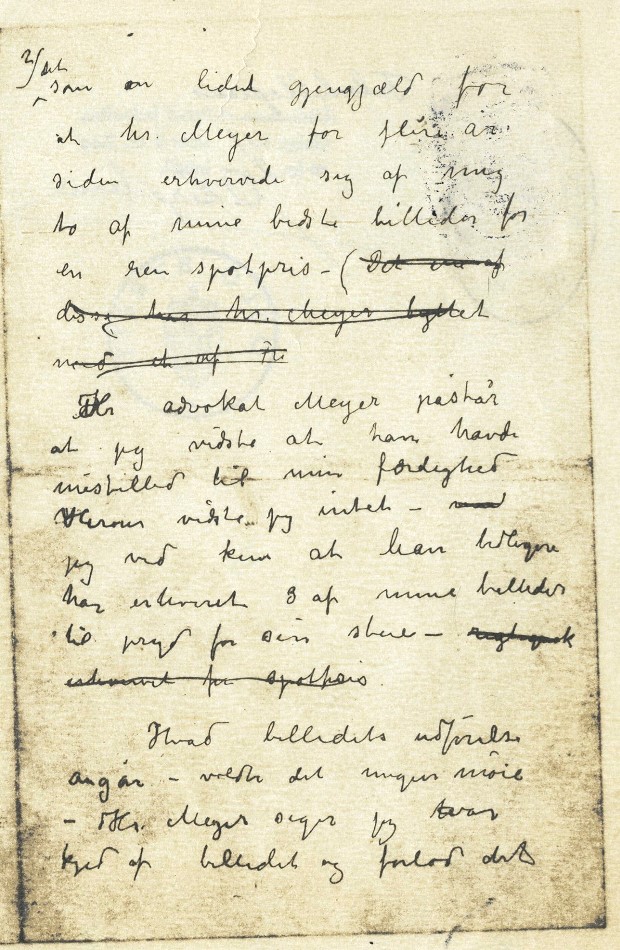 3/ det
som en lident gjengjæld for
at hr. Meyer for flere år
siden erhvervede sig af mig
to af mine bedste billeder for
en ren spotpris – ( Det ene af
disse har hr. Meyer byttet
med et af
Hr advokat Meyer påstår
at jeg vidste at han havde
mistillid til min færdighed
Herom vidste jeg intet – med
jeg ved kun at han tidligere
har erhvervet 3 af mine billeder
til pryd for sin stue –
erhvervet for spotpris.
Hvad billedets udførelse
angår – voldte det megen møie
– Hr. Meyer siger jeg var
kjed af billedet og forlod det